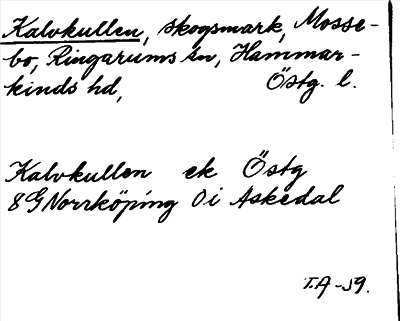 Kalvkullen, skogsmark, Mosse-
bo, Ringarums sn, Hammar-
kinds hd, Östg. l.
Kalvkullen ek Östg
8G Norrköping 0i Askedal
T.A -59.